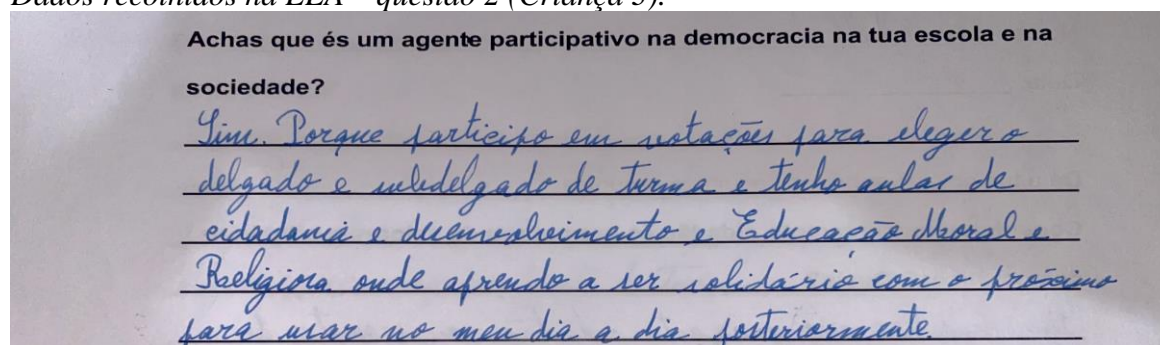 Dados recolhidos na EEA – questão 2 (Criança 3).
Achas que és um agente participativo na democracia na tua escola e na
sociedade?
Sim. Porque participo em votações para eleger o
delgado e subdelgado de turma e tenho aulas de
cidadania e desenvolvimento e Educação Moral e
Religiosa onde aprendo a ser solidário com o próximo
para usar no meu dia a dia posteriormente.